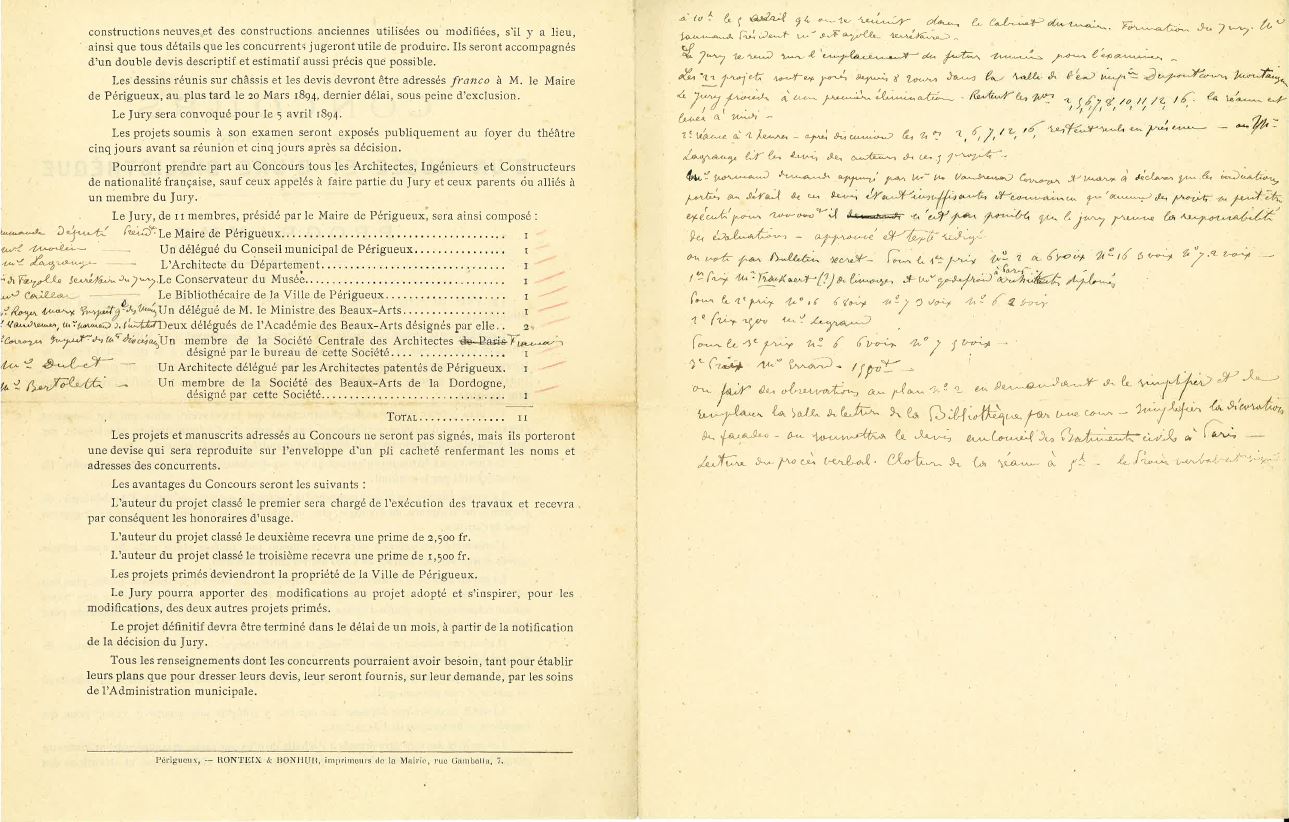 constructions neuves et des constructions anciennes utilisées ou modifiées, s'il y a lieu,
ainsi que tous détails que les concurrents jugeront utile de produire. Ils seront accompagnés
d'un double devis descriptif et estimatif aussi précis que possible.
Les dessins réunis sur châssis et les devis devront être adressés franco à M. le Maire
de Périgueux, au plus tard le 20 Mars 1894, dernier délai, sous peine d'exclusion.
Le Jury sera convoqué pour le 5 avril 1894.
Les projets soumis à son examen seront exposés publiquement au foyer du théâtre
cinq jours avant sa réunion et cinq jours après sa décision.
Pourront prendre part au Concours tous les Architectes, Ingénieurs et Constructeurs
de nationalité française, sauf ceux appelés à faire partie du Jury et ceux parents ou alliés à
un membre du Jury.
Le Jury, de 11 membres, présidé par le Maire de Périgueux, sera ainsi composé :
député Présidt Le Maire de Périgueux 1
Un délégué du Conseil municipal de Périgueux 1
Mr Lagrange L'Architecte du Département 1
de Fayolle secrétaire du jury Le Conservateur du Musée 1
Le Bibliothécaire de la Ville de Périgueux 1
Roger Marx Un délégué de M. le Ministre des Beaux-Arts 1
Deux délégués de l'Académie des Beaux-Arts désignés par elle 2
Un membre de la Société Centrale des Architectes de Paris Français
désigné par le bureau de cette Société 1
Mr Dubet Un Architecte délégué par les Architectes patentés de Périgueux. 1
Mr Bertoletti Un membre de la Société des Beaux-Arts de la Dordogne,
désigné par cette Société 1
TOTAL 11
Les projets et manuscrits adressés au Concours ne seront pas signés, mais ils porteront
une devise qui sera reproduite sur l'enveloppe d'un pli cacheté renfermant les noms et
adresses des concurrents.
Les avantages du Concours seront les suivants :
L'auteur du projet classé le premier sera chargé de l'exécution des travaux et recevra
par conséquent les honoraires d'usage.
L'auteur du projet classé le deuxième recevra une prime de 2,500 fr.
L'auteur du projet classé le troisième recevra une prime de 1,500 fr.
Les projets primés deviendront la propriété de la Ville de Périgueux.
Le Jury pourra apporter des modifications au projet adopté et s'inspirer, pour les
modifications, des deux autres projets primés.
Le projet définitif devra être terminé dans le délai de un mois, à partir de la notification
de la décision du Jury.
Tous les renseignements dont les concurrents pourraient avoir besoin, tant pour établir
leurs plans que pour dresser leurs devis, leur seront fournis, sur leur demande, par les soins
de l'Administration municipale.
Périgueux, — RONTEIX & BONHUR, imprimeurs de la Mairie, rue Gambetta, 7.
à 10h le 5 avril 94 on se réunit dans le cabinet du maire. Formation du Jury. Mr
Président Mr de Fayolle secrétaire.
Le Jury se rend sur l'emplacement du futur musée pour l'examiner.
Les 22 projets sont exposés depuis 8 jours dans la salle de
Le Jury procède à une première élimination. Restent les Nos 2, 5, 6, 7, 8, 10, 11, 12, 16. la séance est
levée à midi.
2e séance à 2 heures – après discussion les nos 2, 6, 7, 12, 16, restent seuls en présence – Mr
Lagrange lit les devis des auteurs de ces 5 projets.
Mr Normand demande appuyé par Mrs Vaudremer Corroyer et Marx à déclarer que les indications
portées au détail de ces devis étant insuffisantes et convaincu qu'aucun des projets ne peut être
exécuté pour il n'est pas possible que le jury prenne la responsabilité
des évaluations – approuvé et texte rédigé
on vote par Bulletin secret – Pour le 1er prix No 2 a 6 voix No 16 3 voix No 7. 2 voix –
1er Prix Mr (?) de Limoges et Mr Godefroid à Paris architectes diplômés
Pour le 2e prix No 16 6 voix No 7 3 voix No 6 2 voix
2e Prix 2500 Mr Legrand
Pour le 3e prix No 6 6 voix No 7 5 voix –
3e Prix Mr Errard – 1500
on fait des observations au plan No 2 en demandant de le simplifier et de
remplacer la salle de lecture de la Bibliothèque par une cour – simplifier la décoration
des façades – on soumettra le devis au conseil des Batiments civils à Paris —
Lecture du procès verbal. Cloture de la séance à 5h – le Procès verbal est signé